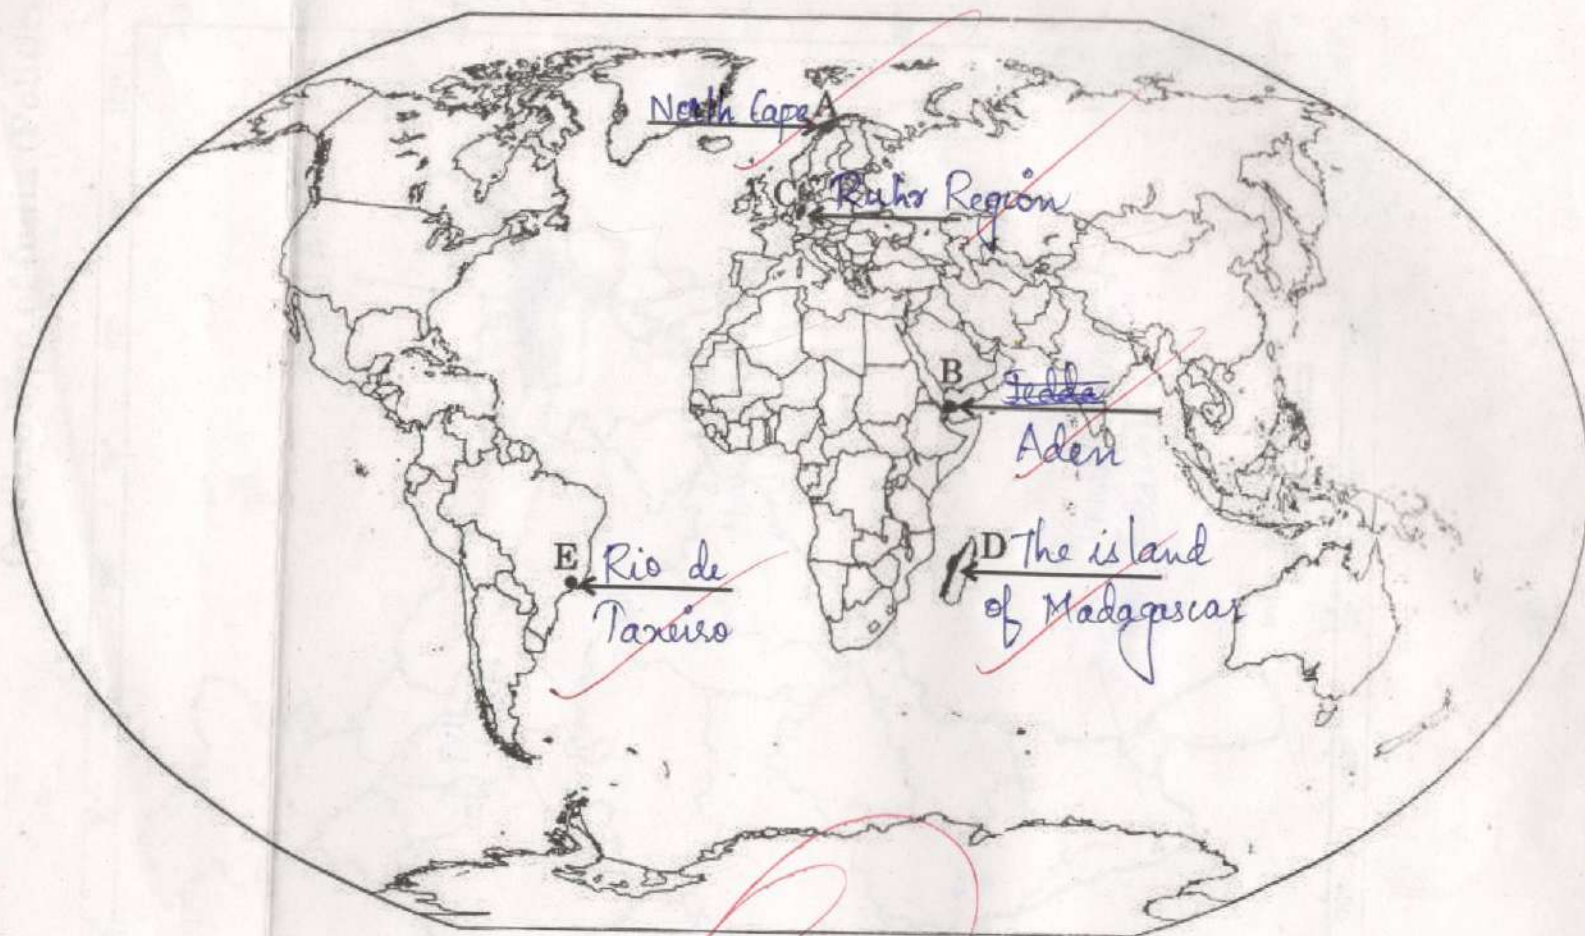 North Cape A
C Ruhr Region
B
Jedda
Aden
D The island
of Madagascar
E Rio de
Janeiro